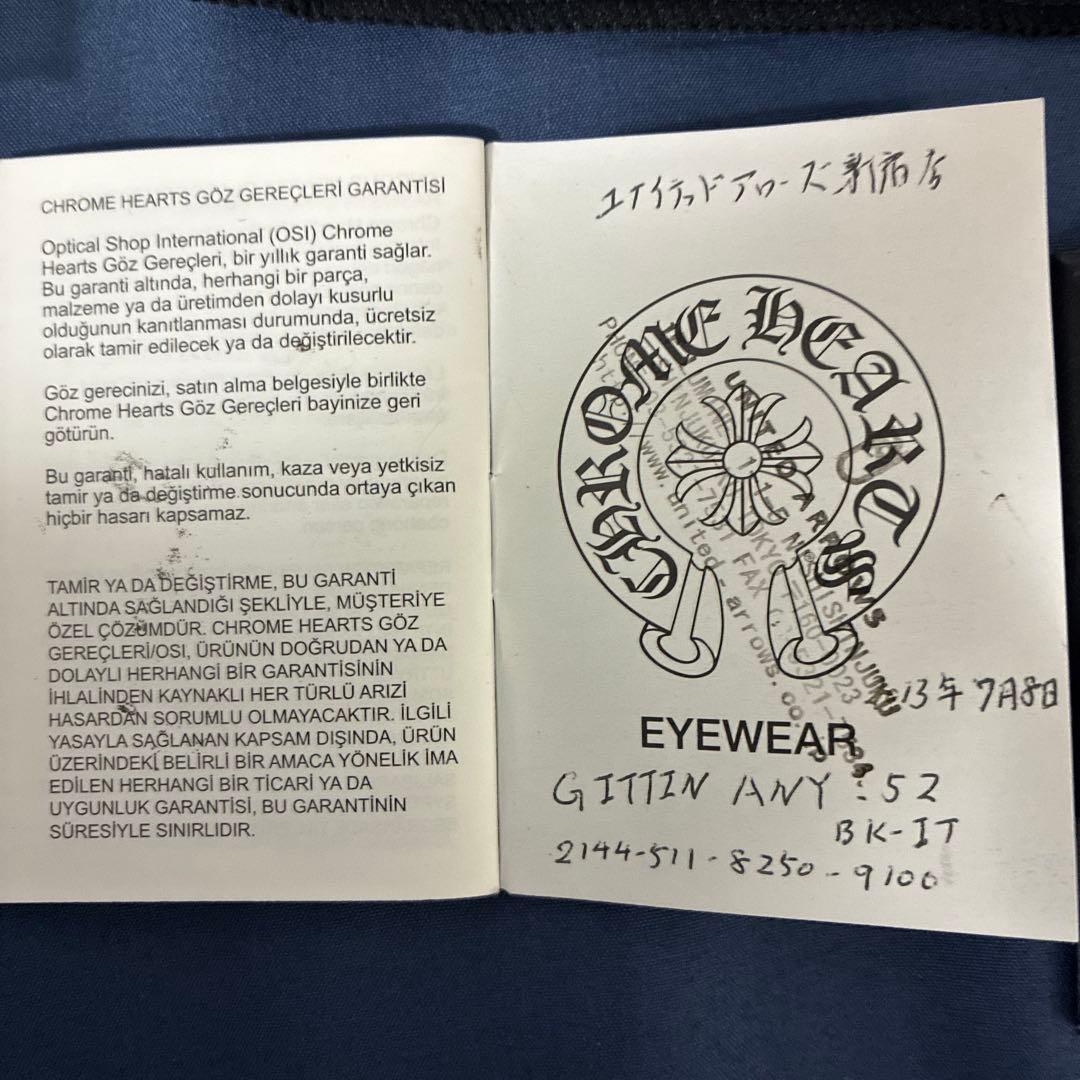 CHROME HEARTS GÖZ GEREÇLERİ GARANTİSİ
Optical Shop International (OSI) Chrome
Hearts Göz Gereçleri, bir yıllık garanti sağlar.
Bu garanti altında, herhangi bir parça,
malzeme ya da üretimden dolayı kusurlu
olduğunun kanıtlanması durumunda, ücretsiz
olarak tamir edilecek ya da değiştirilecektir.
Göz gerecinizi, satın alma belgesiyle birlikte
Chrome Hearts Göz Gereçleri bayinize geri
götürün.
Bu garanti, hatalı kullanım, kaza veya yetkisiz
tamir ya da değiştirme sonucunda ortaya çıkan
hiçbir hasarı kapsamaz.
TAMİR YA DA DEĞİŞTİRME, BU GARANTİ
ALTINDA SAĞLANDIĞI ŞEKLİYLE, MÜŞTERİYE
ÖZEL ÇÖZÜMDÜR. CHROME HEARTS GÖZ
GEREÇLERİ/OSI, ÜRÜNÜN DOĞRUDAN YA DA
DOLAYLI HERHANGİ BİR GARANTİSİNİN
İHLALİNDEN KAYNAKLI HER TÜRLÜ ARIZİ
HASARDAN SORUMLU OLMAYACAKTIR. İLGİLİ
YASAYLA SAĞLANAN KAPSAM DIŞINDA, ÜRÜN
ÜZERİNDEKİ BELİRLİ BİR AMACA YÖNELİK İMA
EDİLEN HERHANGİ BİR TİCARİ YA DA
UYGUNLUK GARANTİSİ, BU GARANTİNİN
SÜRESİYLE SINIRLIDIR.
ユナイテッドアローズ新宿店
CHROME HEARTS
UNITED ARROWS
NISHISHINJUKU
TOKYO 〒160-0023
FAX
www.united-arrows.co.
13年7月8日
EYEWEAR
GITTIN ANY : 52
BK-IT
2144-511-8250-9100